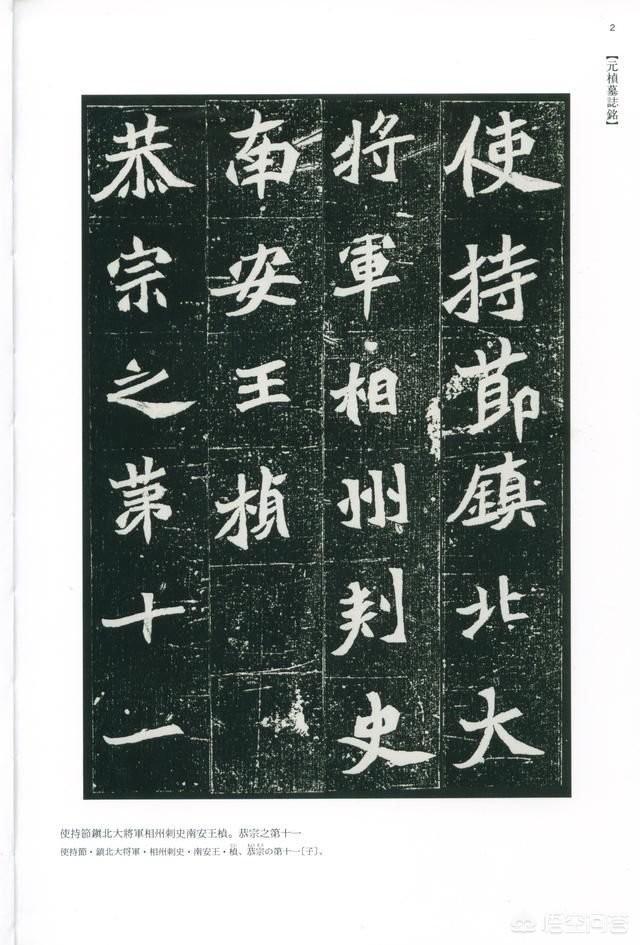 2
【元楨墓誌銘】
使持節鎮北大
將軍相州刺史
南安王楨
恭宗之第十一
使持節鎭北大將軍相州刺史南安王楨。恭宗之第十一
使持節・鎭北大将軍・相州刺史・南安王・楨、恭宗の第十一〔子〕。
悟空问答